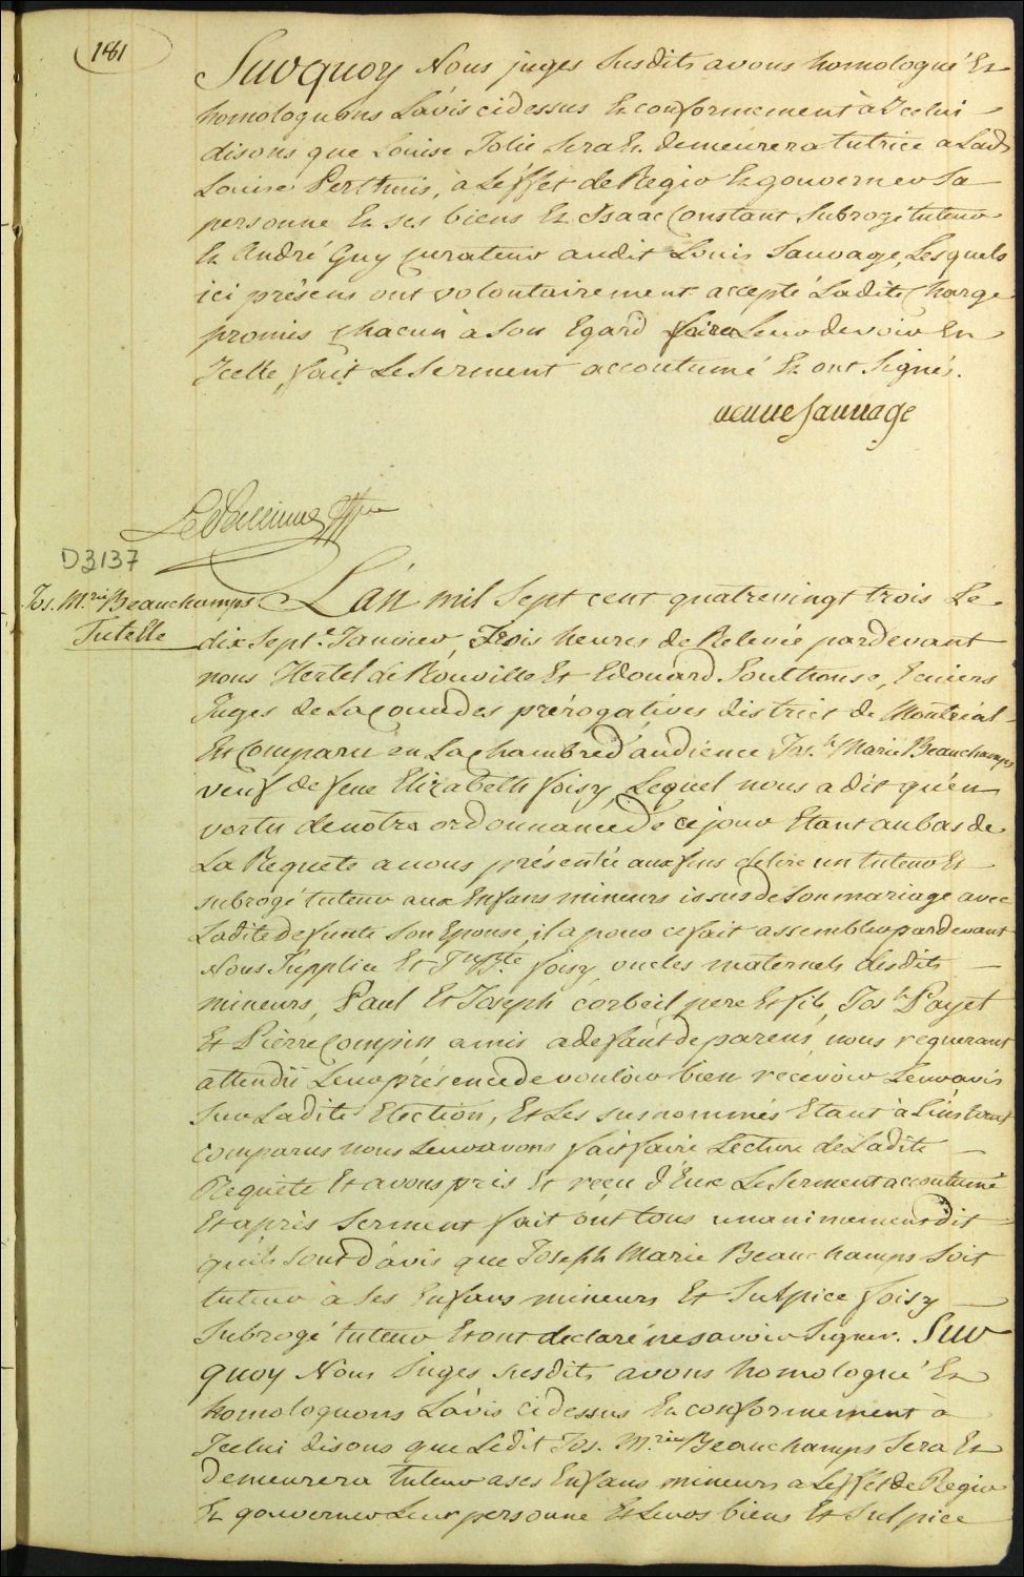 181
Surquoy Nous juges susdits avons homologué Et
homologuons L'avis cidessus En conformement à Jcelui
disons que Louise Jolie sera Et demeurera tutrice a Lad
Louise Perthuis, à L'effet de Regir Et gouverner Sa
personne Et ses biens Et Isaac Constant Subrogé tuteur
Et André Guy Curateur audit Louis Sauvage, Lesquels
ici présens ont volontairement accepté Ladite Charge
promis chacun à Son Egard faire Leur devoir En
Jcelle, fait Le Serment accoutumé Et ont Signés.
veuve sauvage
D3137
Jos. M.rie Beauchamps
Tutelle
L'an mil Sept cent quatrevingt trois Le
dix Sept Janvier, Trois heures de Relevée pardevant
nous Hertel de Rouville Et Edouard Southouse, Ecuiers
Juges de La Cour des prérogatives district de Montréal
Est Comparu en La Chambre d'audience Jos.h Marie Beauchamps
veuf de feue Elizabeth foisy, Lequel nous a dit qu'en
vertu denotre ordonnance De ce jour Etant au bas de
La Requete a nous présentée aux fins delire un tuteur Et
subrogé tuteur aux Enfans mineurs issus de Son mariage avec
Ladite defunte Son Epouse, il a pour ce fait assembler pardevant
Nous Supplice Et J.n B.te foisy oncles maternels desdits
mineurs, Paul Et Joseph Corbeil pere Et fils, Jos.h Payet
Et Pierre Compin amis a defaut de parens, nous requerant
attendû Leur présence de vouloir bien recevoir Leur avis
Sur Ladite Election, Et Les susnommés Etant à L'instant
comparus nous Leur avons fait faire Lecture de Ladite
Requête Et avons pris Et reçu d'Eux Le Serment accoutumé
Et après Serment fait ont tous unanimement dit
qu'ils sont D'avis que Joseph Marie Beauchamps soit
tuteur à Ses Enfans mineurs Et Sulpice foisy
Subrogé tuteur Et ont declaré ne savoir Signer. Sur
quoy Nous Juges susdits avons homologué Et
homologuons L'avis cidessus En conformement à
Jcelui disons que Ledit Jos. M.rie Beauchamps Sera Et
demeurera tuteur a ses Enfans mineurs a L'effet de Regir
Et gouverner Leur personne Et Leurs biens Et Sulpice